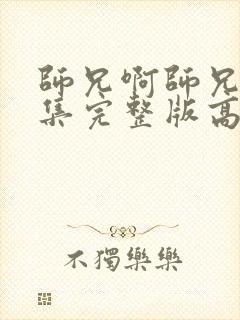 師兄啊師兄
集完整版高
不獨樂樂